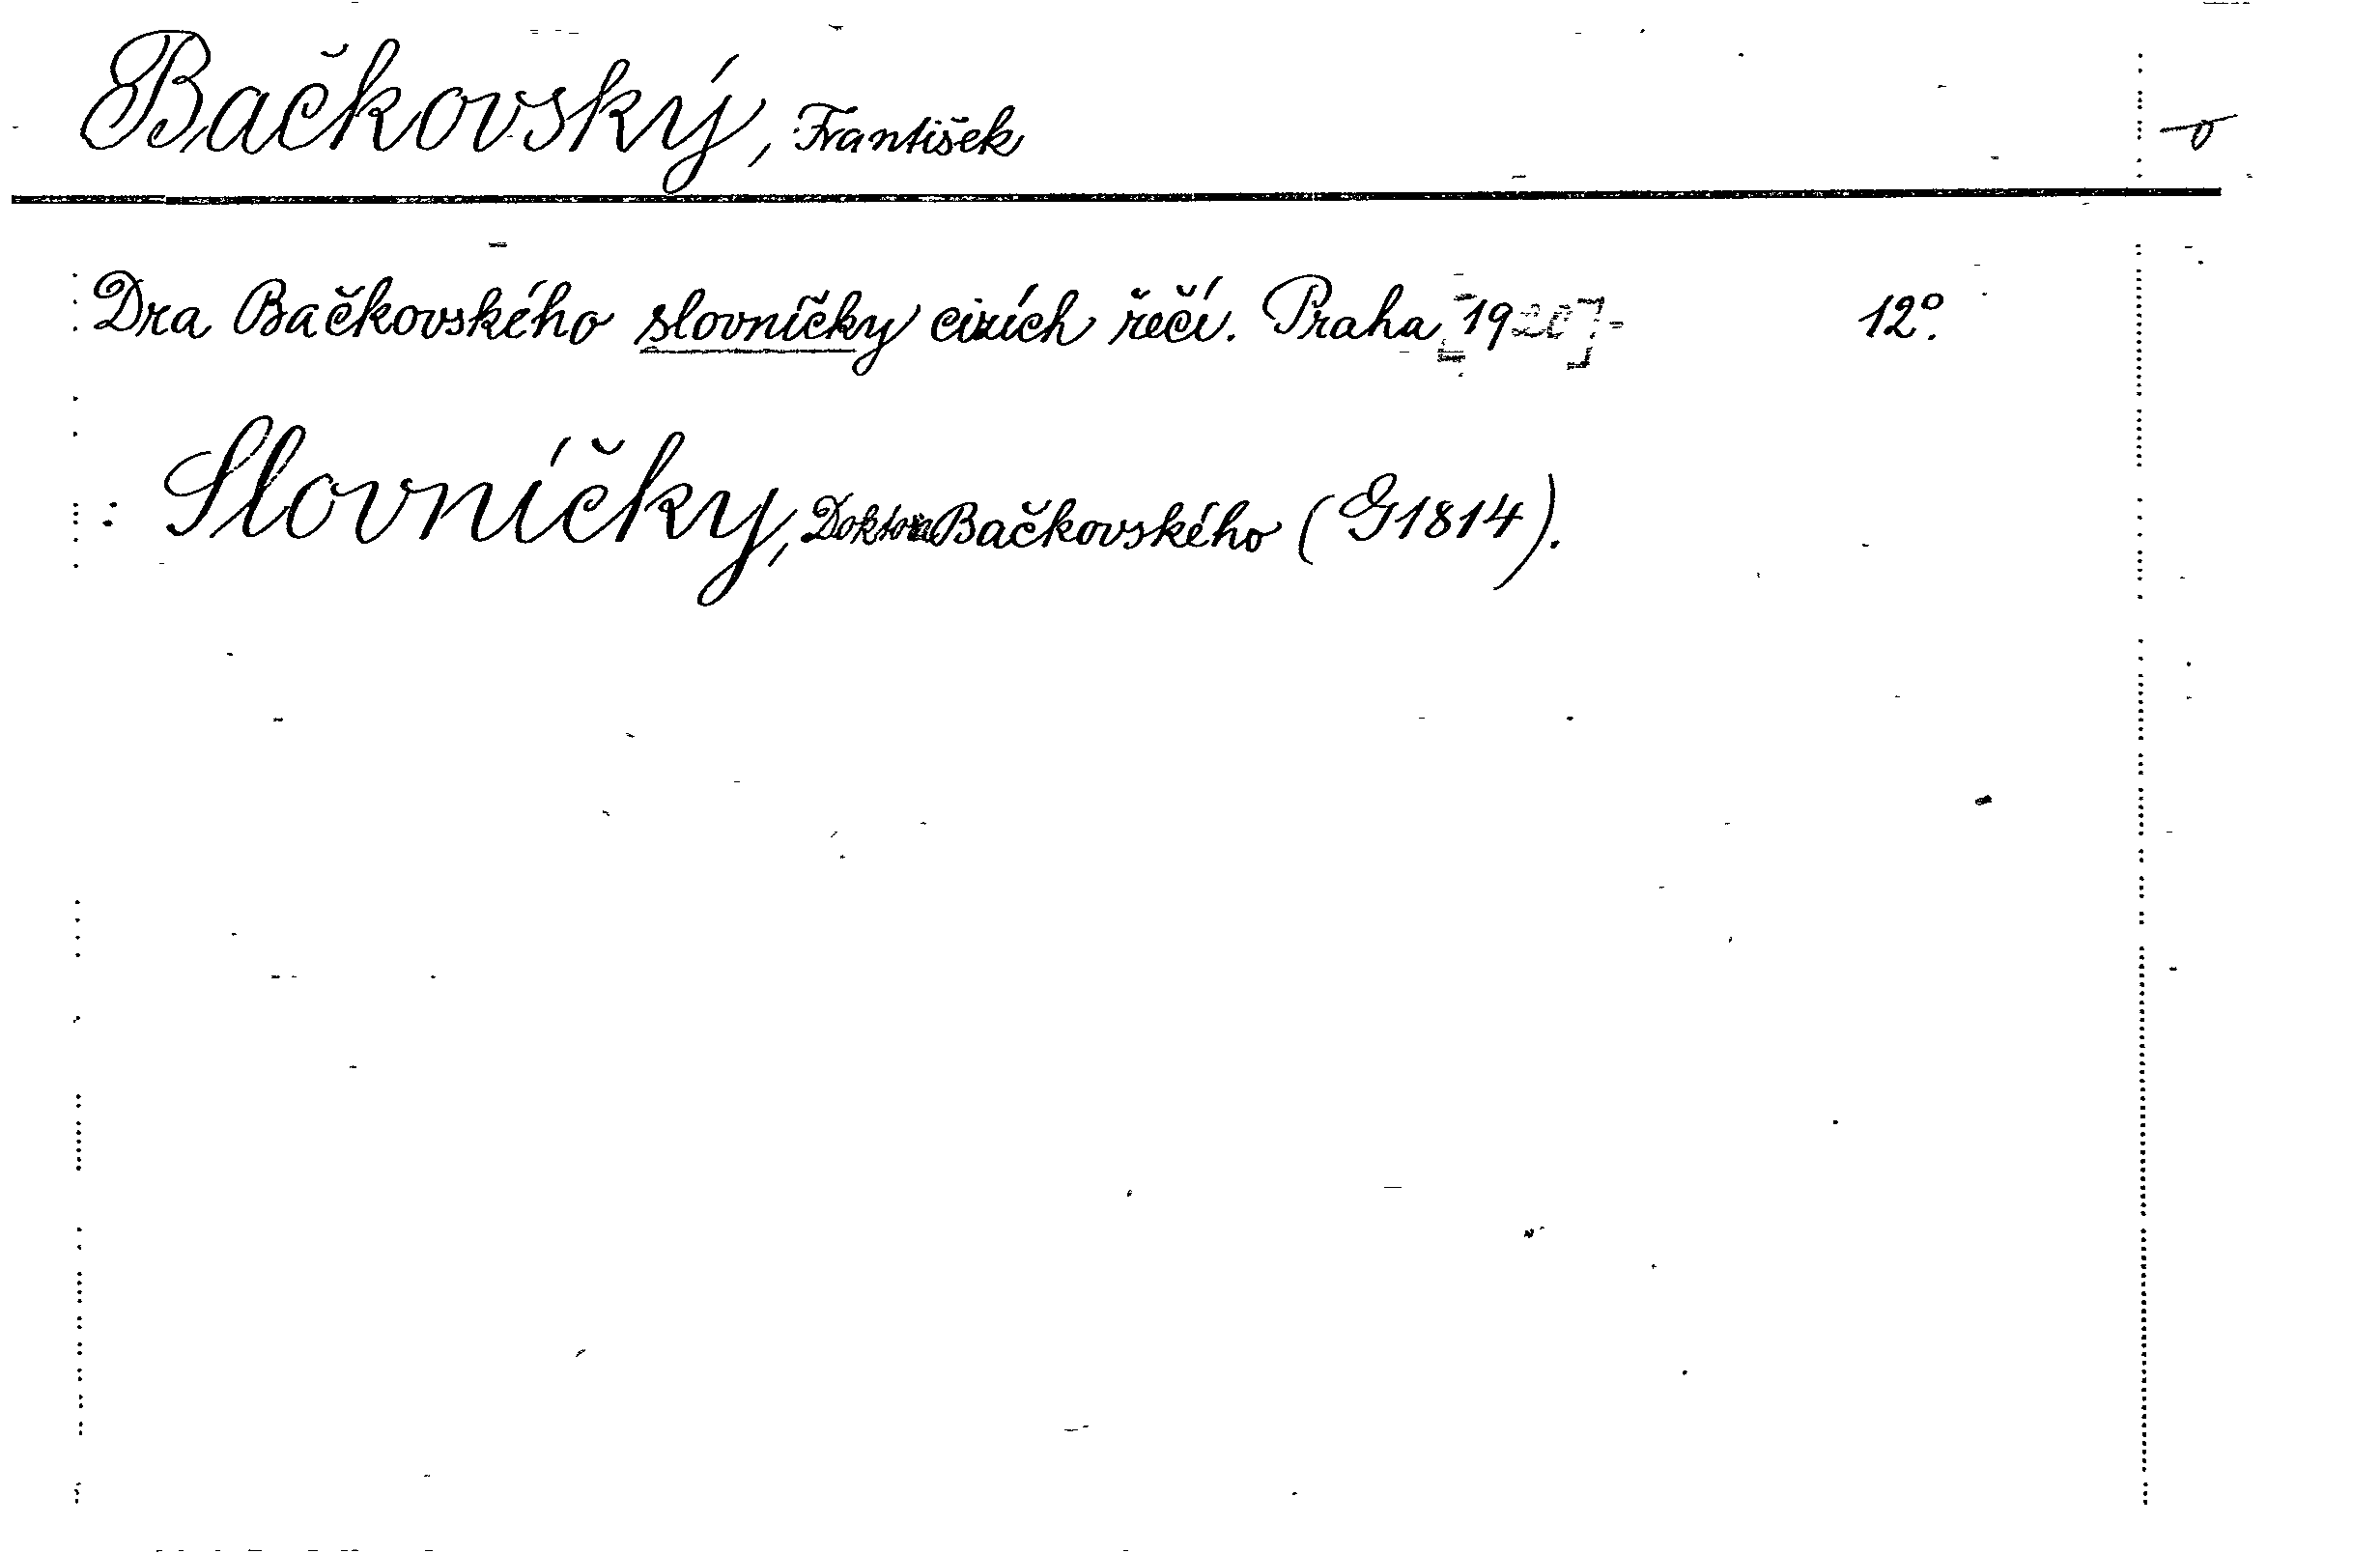 Bačkovský, František
Dra Bačkovského slovníčky cizích řečí. Praha [1920]- 12°.
: Slovníčky, Doktora Bačkovského (G1814).